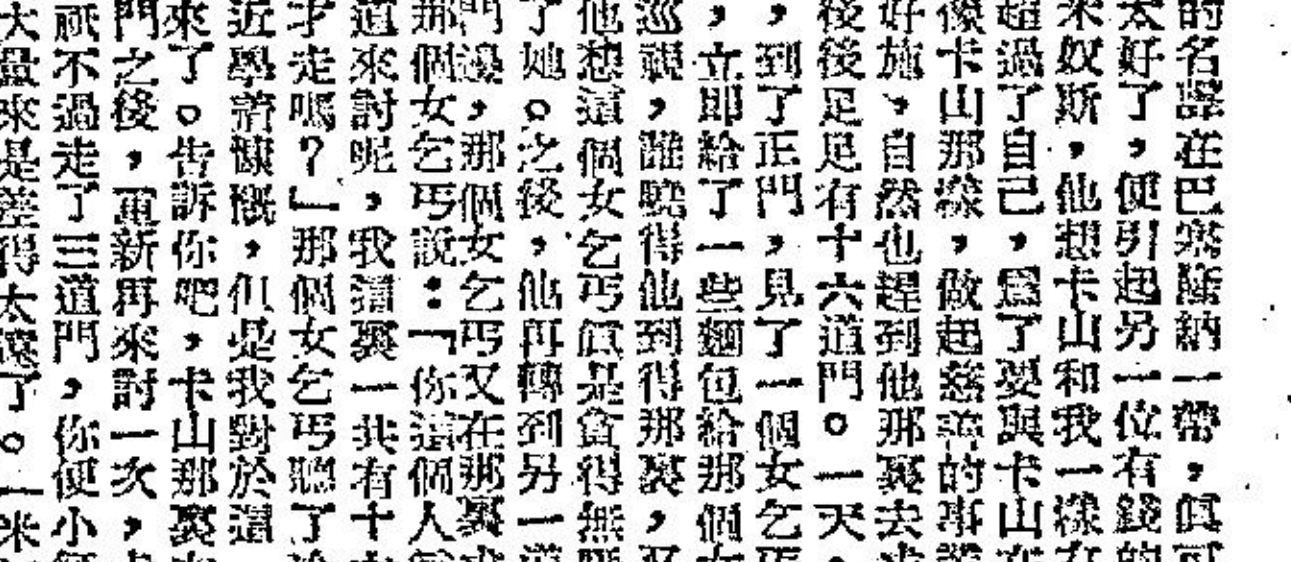 的名譽在巴索薩納一帶，真可
太好了，便引起另一位有錢的
米奴斯，他想卡山和我一樣在
超過了自己，爲了要與卡山在
像卡山那樣，做起慈善的事
好施，自然也趕到他那裏去求
後後足足有十六道門。一天，
，到了正門，見了一個女乞丐
，立卽給了一些麵包給那個女
巡視，誰曉得他到得那裏，又
他想這個女乞丐眞是貪得無
了她。之後，他再轉到另一道
門邊，那個女乞丐又在那裏求
那個女乞丐說：「你這個人
道來討呢，我這裏一共有十六
才走嗎？」那個女乞丐聽了
近學着慷慨，但是我對於這
來了。告訴你吧，卡山那裏
門之後，重新再來討一次，卡
祇不過走了三道門，你便小
大量來是差得太遠了。一米